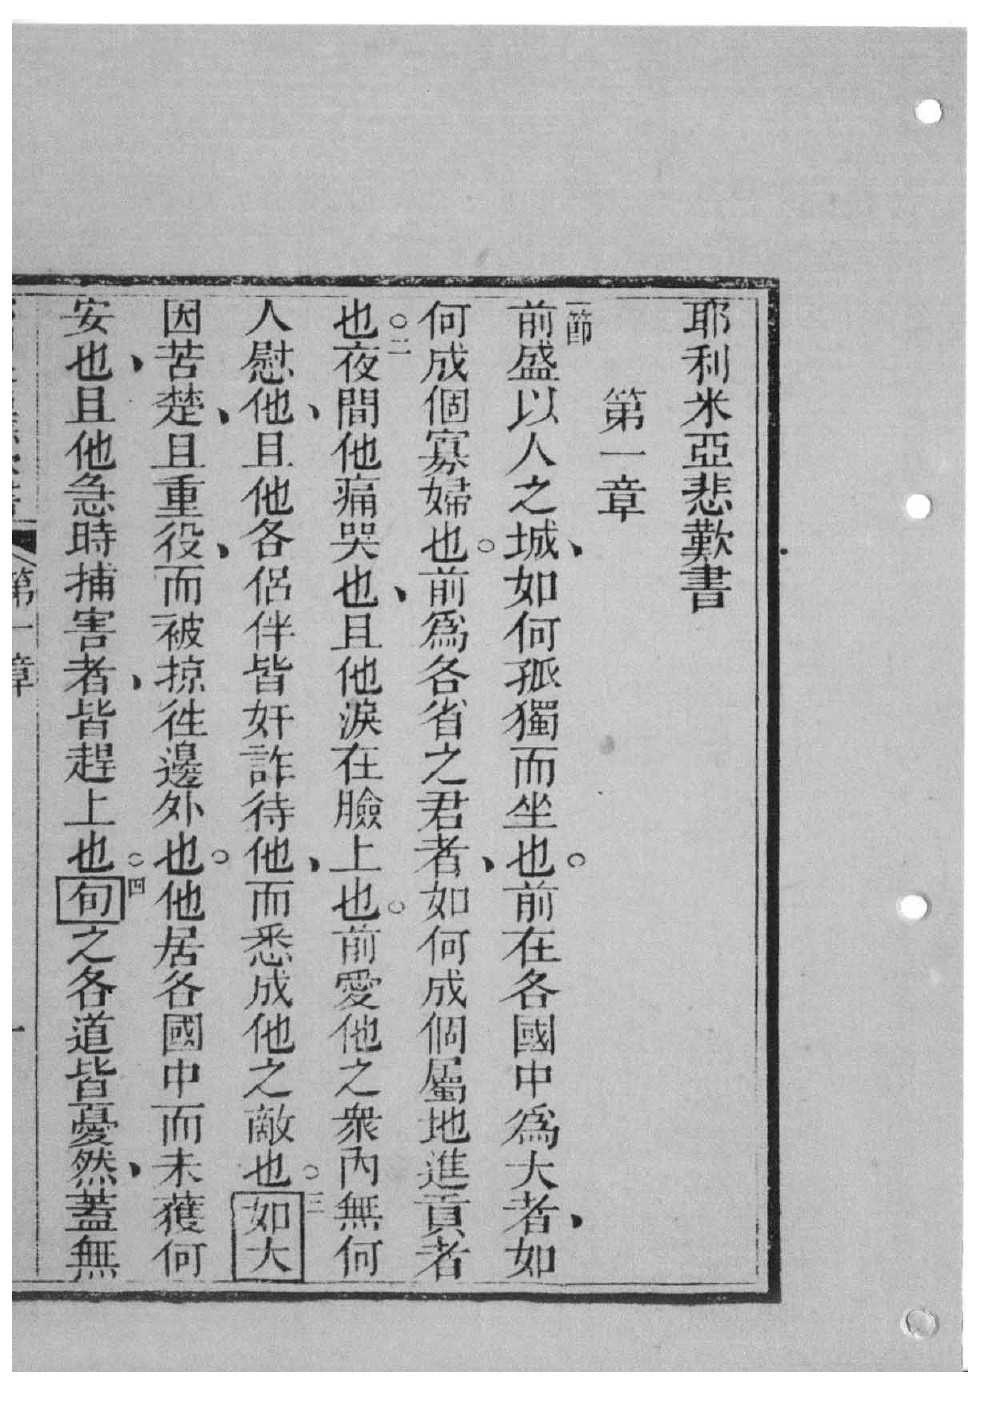 耶利米亞悲歎書
第一章
一節前盛以人之城、如何孤獨而坐也。前在各國中爲大者、如
何成個寡婦也。前爲各省之君者、如何成個屬地進貢者
也。二夜間他痛哭也、且他淚在臉上也。前愛他之衆內無何
人慰他、且他各侶伴皆奸詐待他、而悉成他之敵也。三如大
因苦楚、且重役、而被掠徃邊外也。他居各國中而未獲何
安也、且他急時捕害者、皆趕上也。四旬之各道皆憂然、蓋無
第一章
一